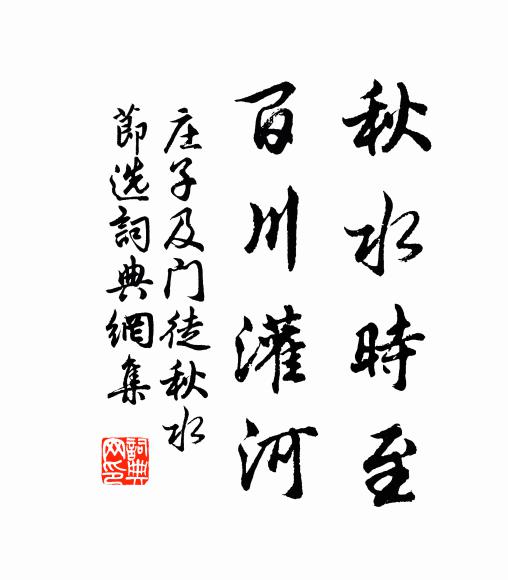 秋水時至
百川灌河
庄子及门徒秋水
節选詞典網集
詞典网印